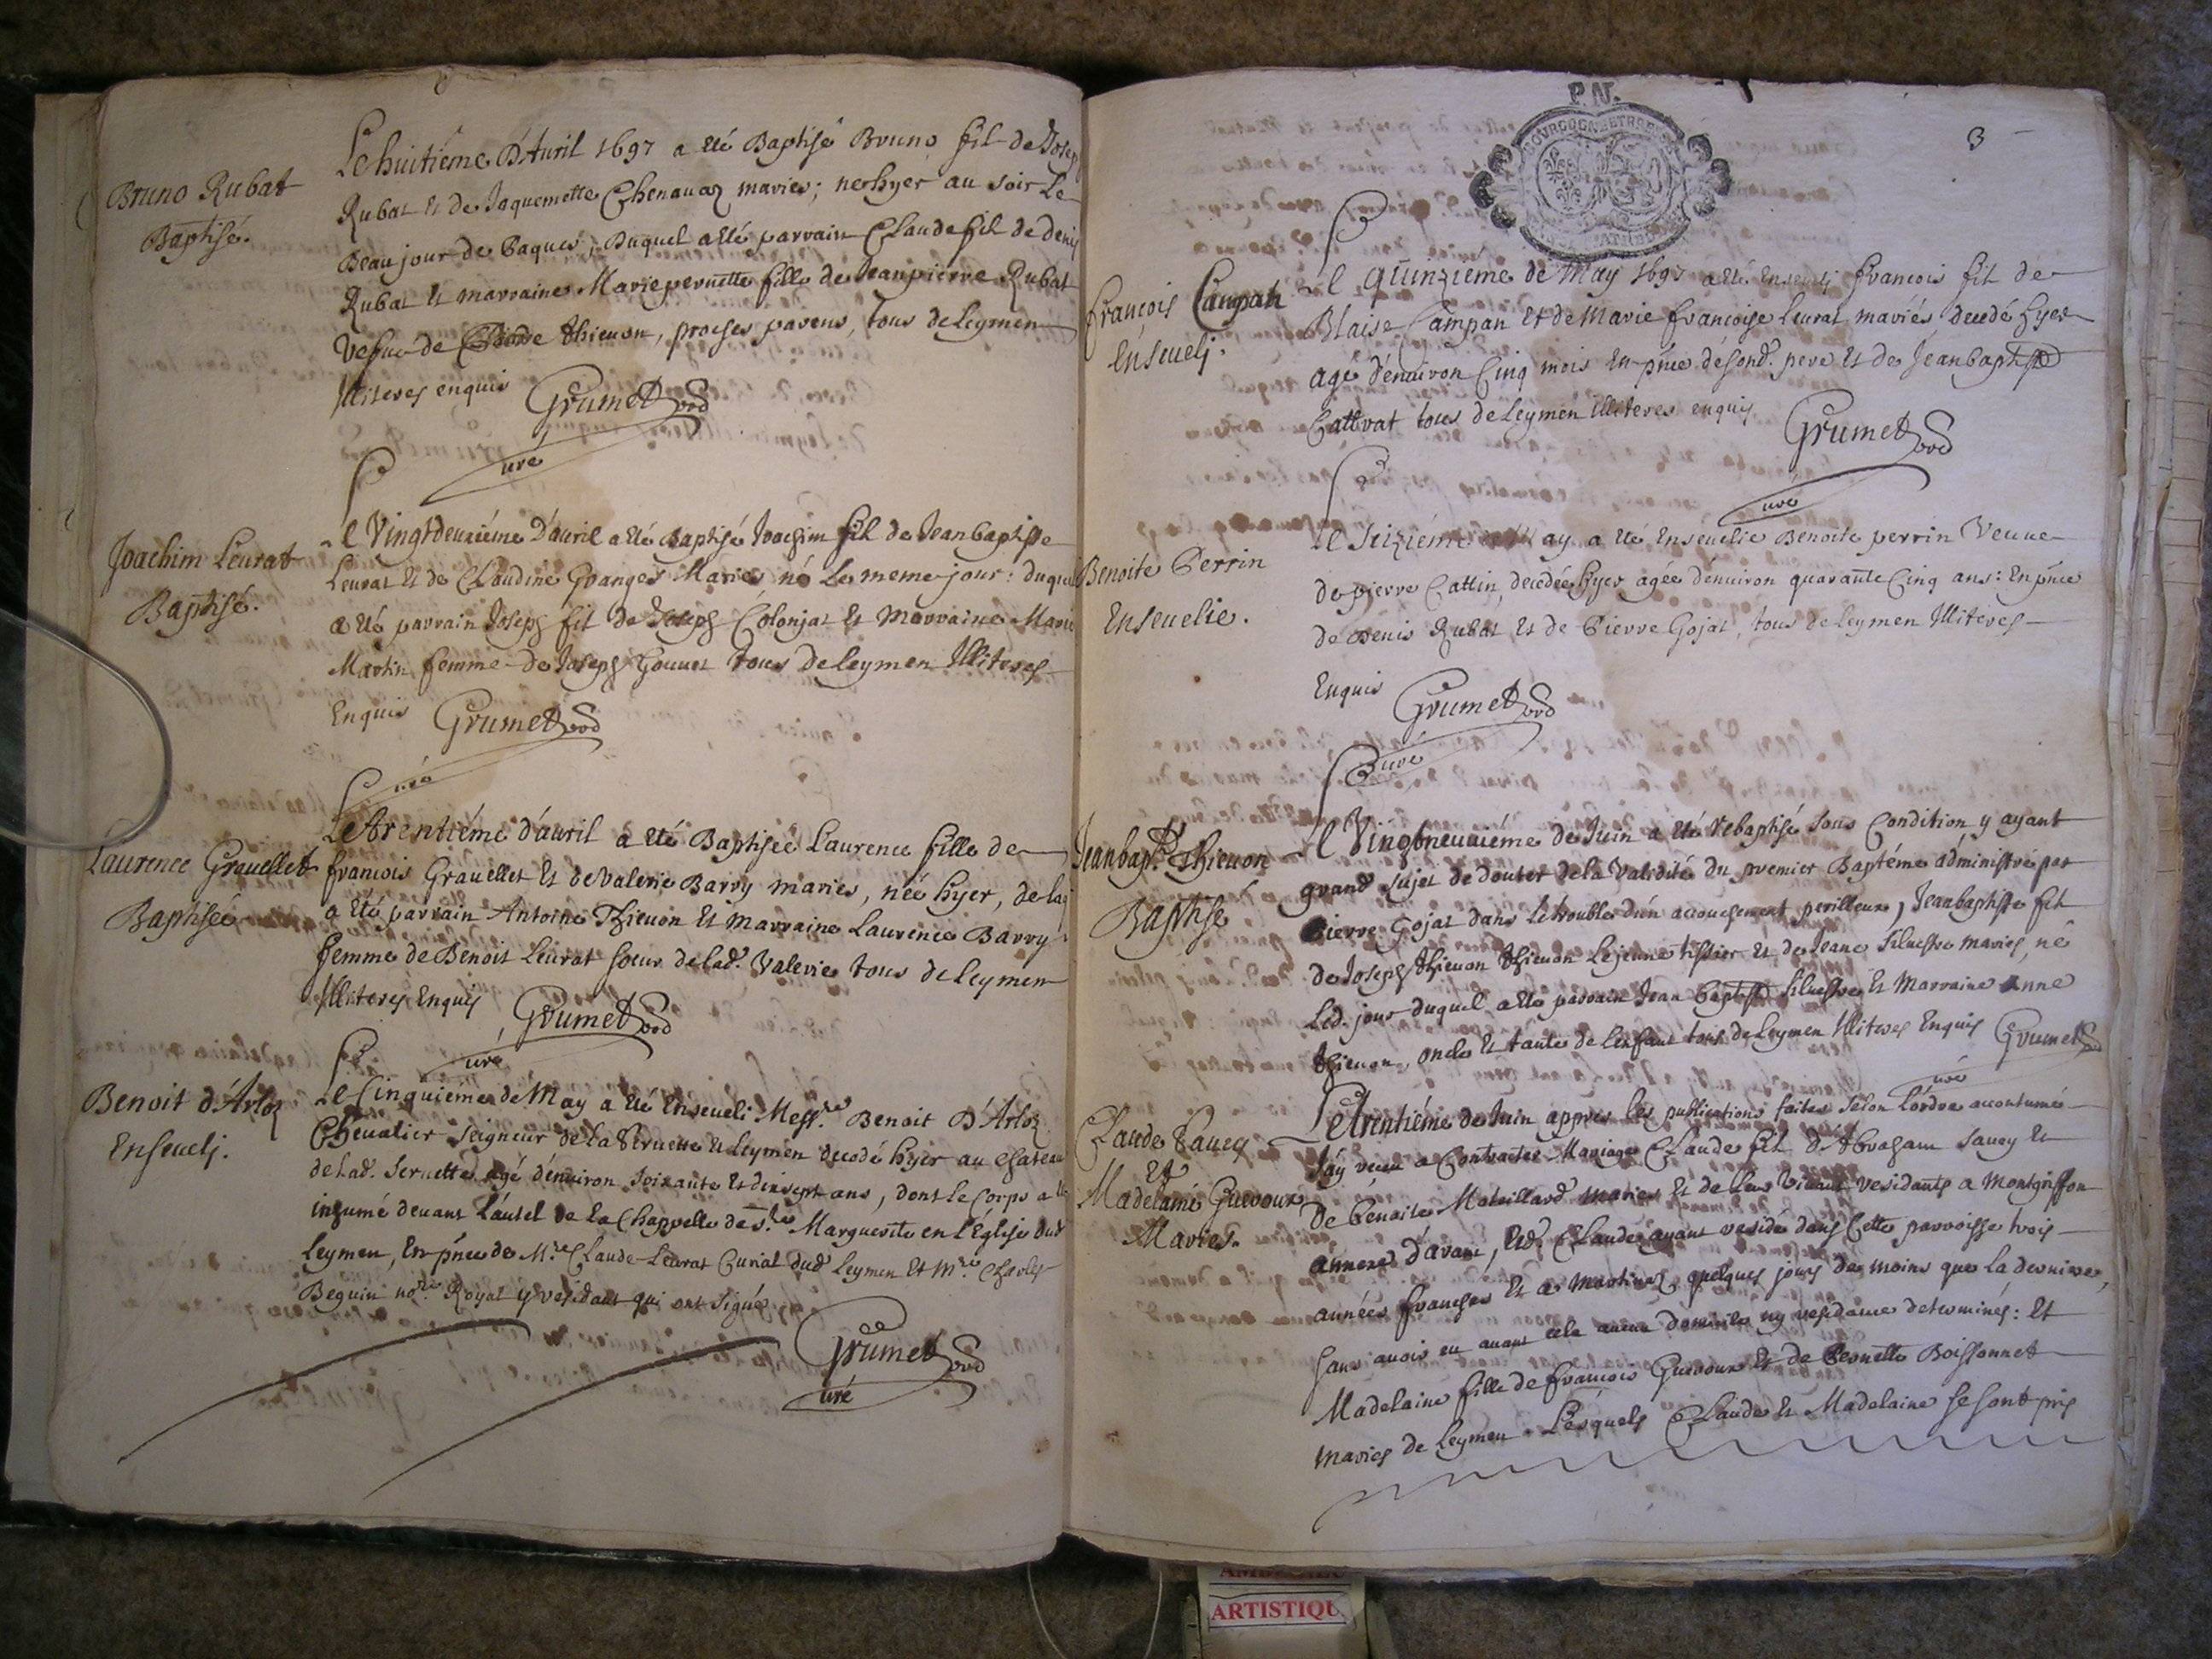 Bruno Rubat
Baptisé.
Le huitiéme D'Auril 1697 a eté Baptisé Bruno fil de Josep
Rubat et de Jaquemette Chenauaz mariés; né hyer au soir Le
Beau jour de Paques; Duquel a eté parrain Claude fil de denis
Rubat et marraine Marie pernette fille de Jeanpierre Rubat
Vefue de Thieuon, proches parens, tous de Leymen
Illiteres enquis Grumet
Curé
Joachim Leurat
Baptisé.
Le Vingtdeuxiéme D'auril a eté Baptisé Joachim fil de Jeanbaptiste
Leurat et de Claudine Granger Mariés né Le meme jour: duquel
a eté parrain Joseph fil de Joseph Colonjat et Marraine Marie
Martin femme de Joseph Gouuet tous de Leymen Illiteres
Enquis Grumet
Curé
Laurence Grauellet
Baptisée
Le trentiéme d'auril a eté Baptisée Laurence fille de
francois Grauellet et de Valerie Barry mariés, née hyer, de laq
a eté parrain Antoine Thieuon et marraine Laurence Barry
femme de Benoit Leurat soeur de lad. Valerie tous de Leymen
Illiteres Enquis Grumet
Curé
Benoit d'Arloz
Enseueli.
Le Cinquiéme de May a eté Enseueli Messre Benoit D'Arloz
Cheualier Seigneur de La Seruette et Leymen decedé hyer au chateau
de lad. Seruette agé d'enuiron soixante et dixsept ans, dont le Corps a eté
inhumé deuant l'autel de la Chappelle de Ste Marguerite en l'Église dud
Leymen, En pnce de Mre Claude Leurat Curial dud Leymen et Mre Charles
Beguin nore Royal y residant qui ont signés
Grumet
Curé
P.N.
3
françois Campan
Enseueli.
Le quinziéme de May 1697 a eté Enseueli francois fil de
Blaise Campan et de Marie francoise Leurat mariés, decedé hyer
agé d'enuiron Cinq mois En pnce de sond. pere et de Jeanbaptiste
Cattrat tous de Leymen illiteres enquis Grumet
Curé
Benoite Perrin
Enseuelie.
Le Seiziéme May a eté Enseuelie Benoite perrin Veuue
de pierre Cattin, decedée hyer agée d'enuiron quarante Cinq ans: En pnce
de Denis Rubat et de Pierre Gojat, tous de Leymen Illiteres
Enquis Grumet
Curé
Jeanbapt. Thieuon
Baptisé
Le Vingtneuuiéme de Juin a eté rebaptisé sous Condition y ayant
grand sujet de douter de la Validité du premier Baptéme administré par
Pierre Gojat dans le trouble d'un accouchement perilleux, Jeanbaptiste fil
de Joseph Thieuon Thieuon Lejeune tissier et de Jeane Siluestre mariés, né
Led. jour duquel a eté parrain Jean Baptiste Siluestre et Marraine Anne
Thieuon, oncle et tante de L'enfant tous de Leymen Illiteres Enquis Grumet
Curé
Claude Sauey
et
Madelaine Gueroux
Mariés.
Le trentiéme de Juin apprés les publications faites selon l'ordre accoutumé
J'ay receu a Contracter Mariage Claude fil d'Abraham Sauey et
De Benoite Moteillard mariés et de leur Viuant residants a Montgriffon
annexe d'Arant, led. Claude ayant residé dans Cette parroisse trois
années franches et a Martinaz quelques jours de moins que la derniere,
sans auoir eu auant cela aucun domicile ny residance determinés: Et
Madelaine fille de francois Gueroux et de Pernette Boissonnet
mariés de Leymen. Lesquels Claude et Madelaine se sont pris
ARTISTIQU